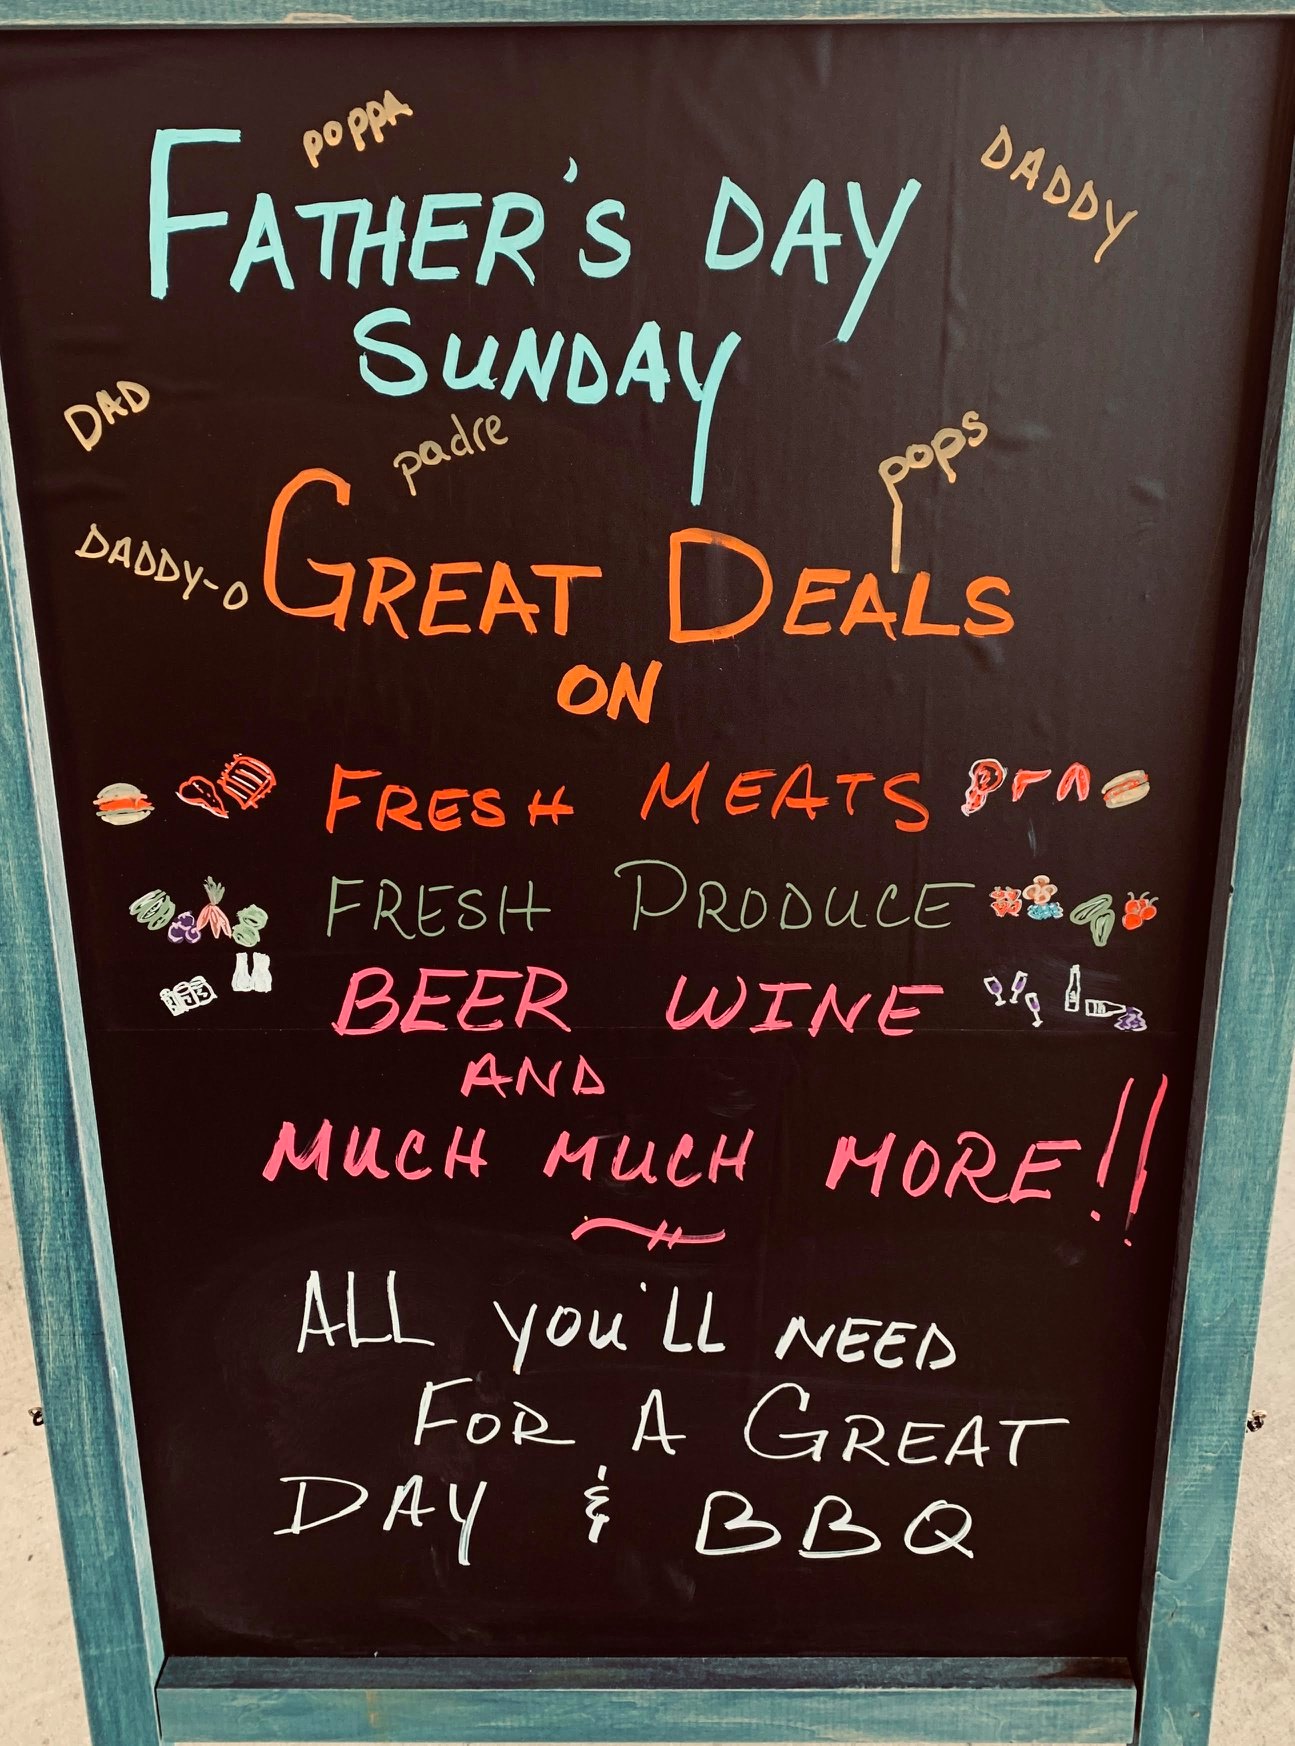 POPPA
DADDY
FATHER'S DAY
SUNDAY
DAD
padre
pops
DADDY-O
GREAT DEALS
ON
FRESH MEATS
FRESH PRODUCE
BEER WINE
AND
MUCH MUCH MORE!!
ALL you'LL NEED
FOR A GREAT
DAY & BBQ